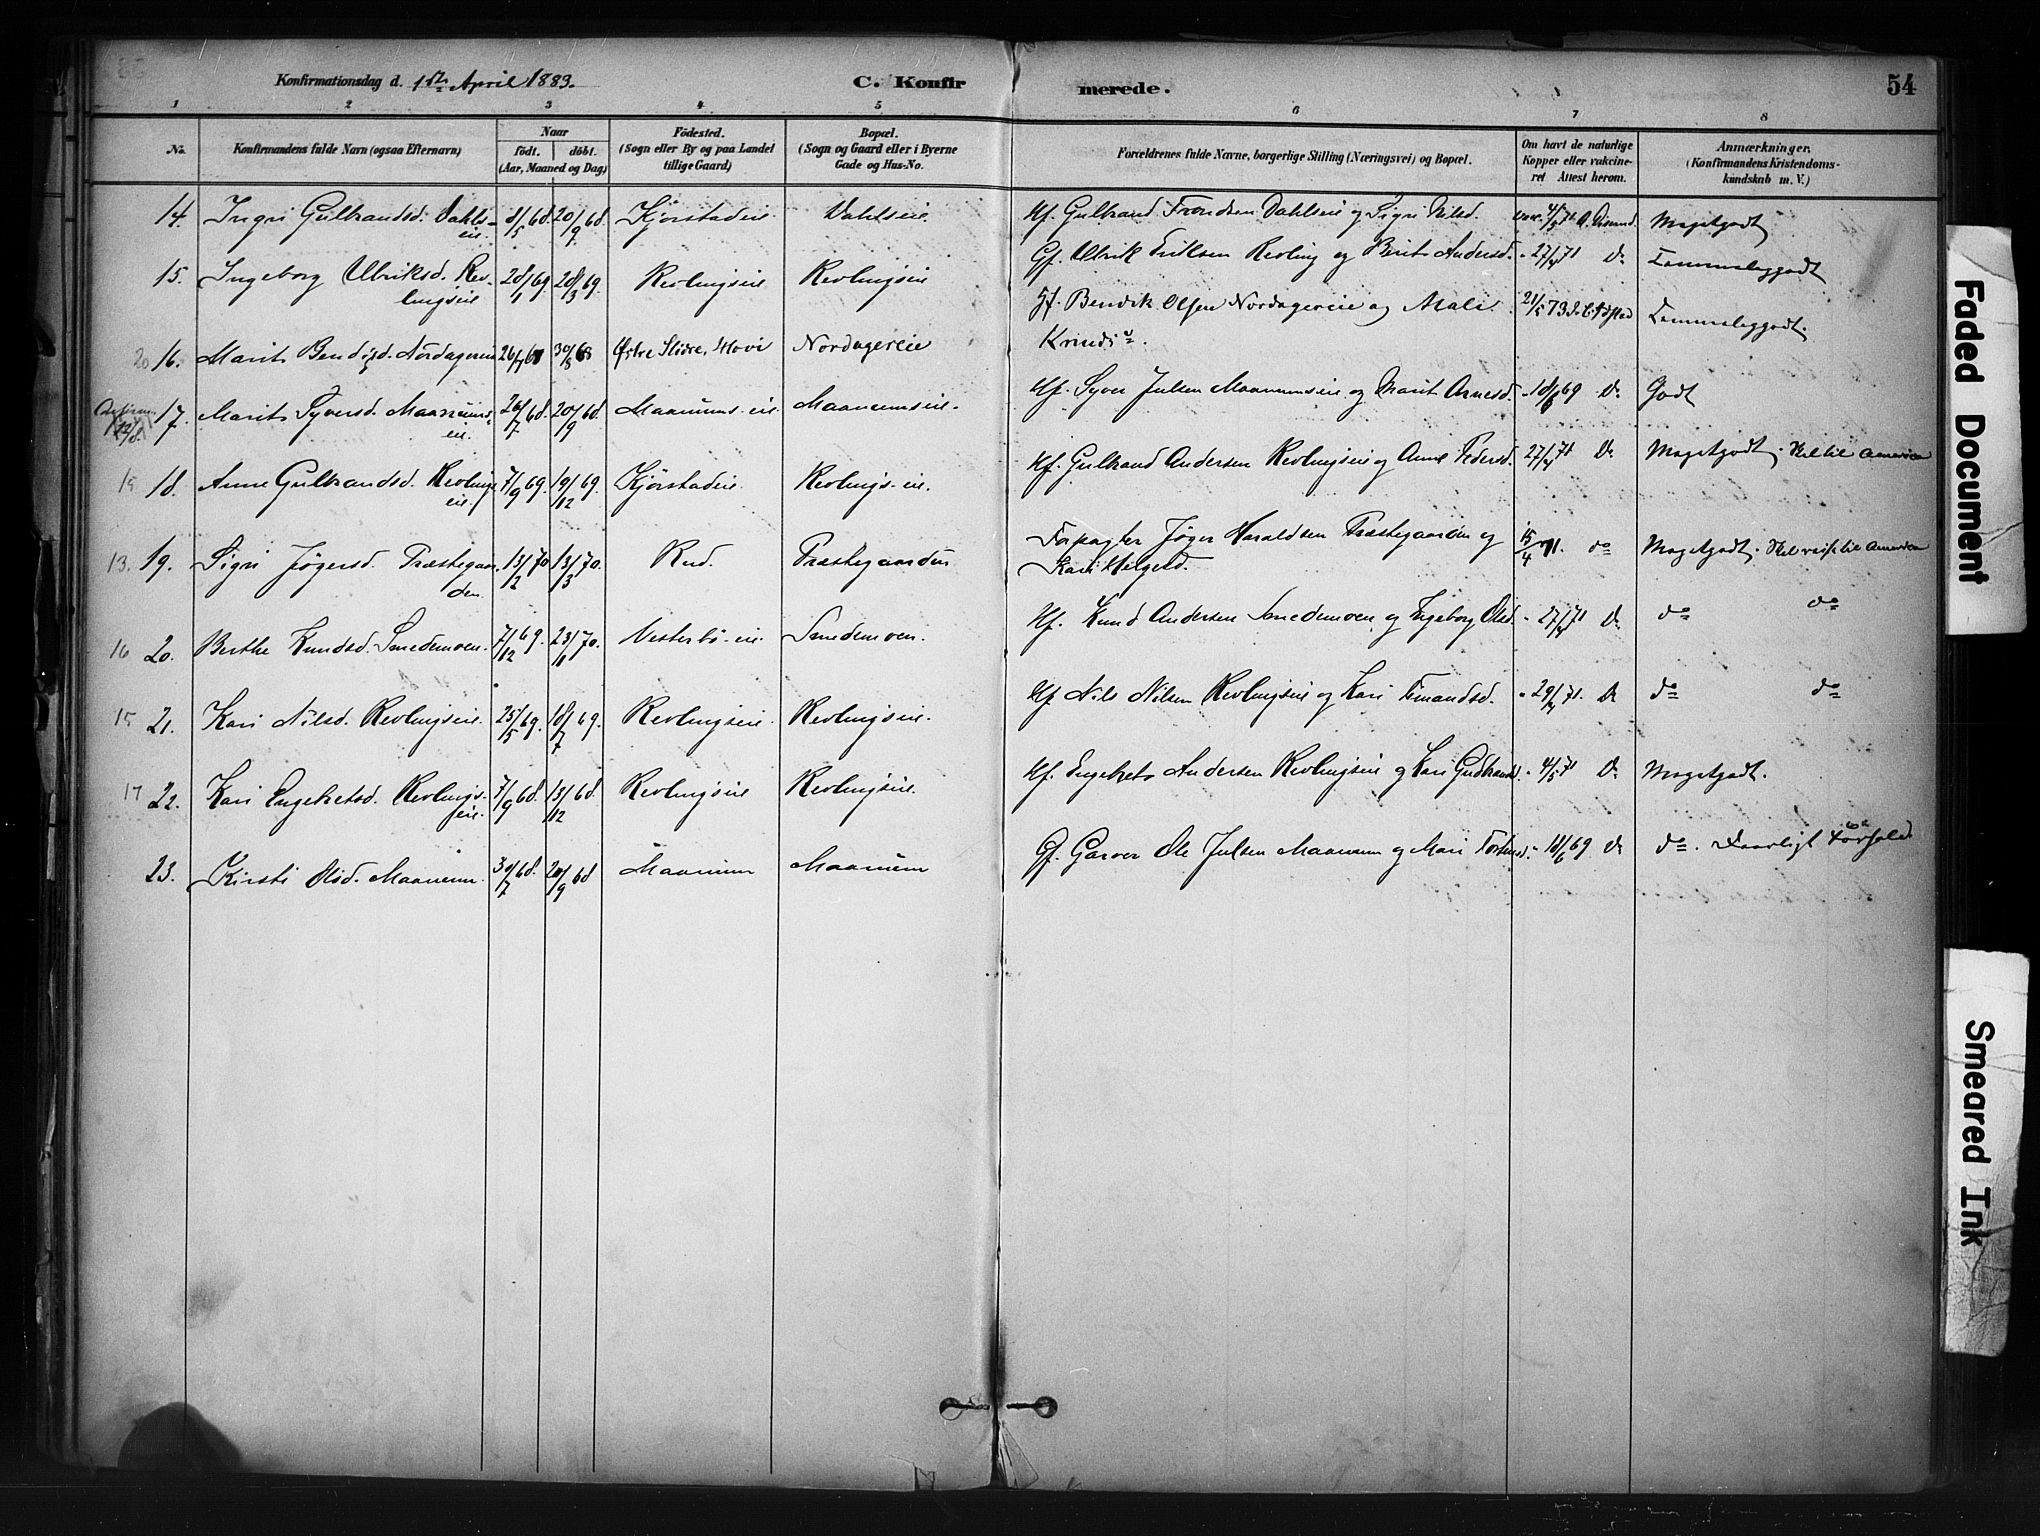 Konfirmationsdag d. 1ste April 1883.
C. Konfirmerede.
54
1 2 3 4 5 6 7 8
No.
Konfirmandens fulde Navn (ogsaa Efternavn)
Naar
födt. döbt.
(Aar, Maaned og Dag)
Födested.
(Sogn eller By og paa Landet
tillige Gaard)
Bopæl.
(Sogn og Gaard eller i Byerne
Gade og Hus-No.
Forældrenes fulde Navne, borgerlige Stilling (Næringsvei) og Bopæl.
Om havt de naturlige
Kopper eller vakcine-
ret Attest herom.
Anmærkninger,
(Konfirmandens Kristendoms-
kundskab m. V.)
14. Ingri Gulbrandsd. Dahls- 8/5 68. 20/9 68. Kjörstadeie Dahlseie Hf. Gulbrand Trondsen Dahlseie og Sigri Nilsd. 4/5 71 Megetgodt
eie.
15. Ingeborg Ulriksd. Rev- 28/1 69. 28/3 69. Revlingseie Revlingseie Gf. Ulrik Eriksen Revling og Berit Andersd. 27/4 71 Do Temmeliggodt
lingseie
20 16. Marit Bendiksd. Nordagereie 26/7 67 30/8 68 Østre Slidre, Hovi Nordagereie Hf. Bendik Olsen Nordagereie og Mali 21/5 73 Temmeliggodt.
17. Marit Syversd. Maanums- 26/7 68. 20/9 68. Maanums-eie Maanumseie. Hf. Syver Julsen Maanumseie og Marit Arnesd. 18/6 69 Do Godt
eie.
18. Anne Gulbrandsd. Revlings- 7/9 69. 19/12 69. Kjörstadeie Revlings-eie. Hf. Gulbrand Andersen Revlingseie og Anne Pedersd. 27/4 71 Do Megetgodt. Skal til America
eie.
13. 19. Sigri Jögersd. Præstegaar- 13/2 70 13/3 70. Rud. Præstegaarden Forpagter Jöger Haraldsen Præstegaarden og 15/4 71. do Megetgodt. Skal reise til America
den. Kari Helgesd.
16 20. Berthe Knudsd. Smedemoen. 7/12 69. 23/1 70. Vesterbö-eie Smedemoen. Hf. Knud Andersen Smedemoen og Ingeborg Olsd. 27/4 71 Do do do
15 21. Kari Nilsd. Revlingseie. 25/5 69. 18/7 69. Revlingseie Revlingseie. Hf Nils Nilsen Revlingseie og Kari 29/4 71. Do do do
17 22. Kari Engebretsd. Revlings- 7/9 68. 13/12 68. Revlingseie Revlingseie. Hf. Engebret Andersen Revlingseie og Kari Gudbrandsd. 4/5 71 Do Megetgodt.
eie.
23. Kirsti Olsd. Maanum. 30/7 68. 20/9 68 Maanum Maanum Gf. Garver Ole Julsen Maanum og Mari 18/6 69 Do do. Daarligt Forhold
Faded Document
Smeared Ink